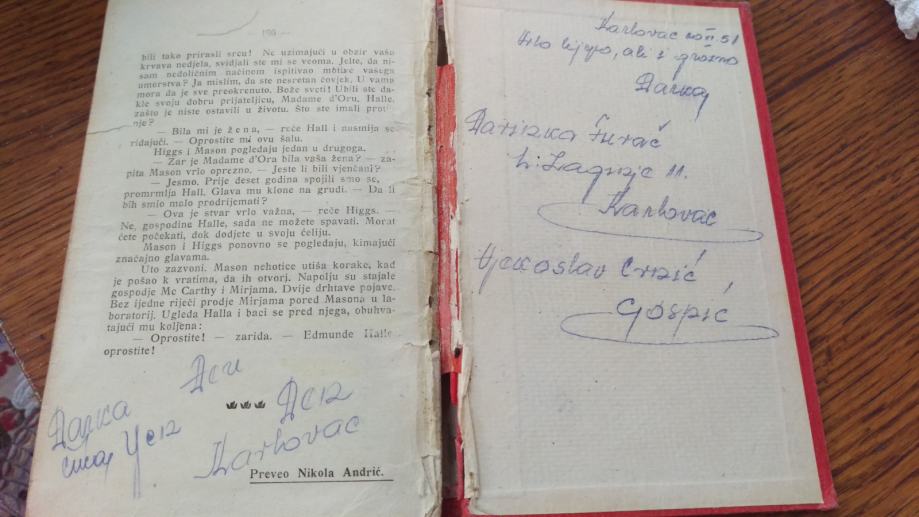 — 190 —
bili tako prirasli srcu! Ne uzimajući u obzir vaša
krvava nedjela, svidjali ste mi se veoma. Jelte, da ni-
sam nedoličnim načinom ispitivao motive vašega
umorstva? Ja mislim, da ste nesretan čovjek. U vama
mora da je sve preokrenuto. Bože sveti! Ubili ste da-
kle svoju dobru prijateljicu, Madame d'Oru, Halle,
zašto je niste ostavili u životu. Što ste imali proti
nje?
— Bila mi je žena, — reče Hall i nasmija se
ridajući. — Oprostite mi ovu šalu.
Higgs i Mason pogledaju jedan u drugoga.
— Zar je Madame d'Ora bila vaša žena? — za-
pita Mason vrlo oprezno. — Jeste li bili vjenčani?
— Jesmo. Prije deset godina spojili smo se, —
promrmlja Hall. Glava mu klone na grudi. — Da li
bih smio malo prodrijemati?
— Ova je stvar vrlo važna, — reče Higgs. —
Ne, gospodine Halle, sada ne možete spavati. Morat
ćete počekati, dok dodjete u svoju ćeliju.
Mason i Higgs ponovno se pogledaju, kimajući
značajno glavama.
Uto zazvoni. Mason nehotice utiša korake, kad
je pošao k vratima, da ih otvori. Napolju su stajale
gospodje Mc Carthy i Mirjama. Dvije drhtave pojave.
Bez ijedne riječi prodje Mirjama pored Masona u la-
boratorij. Ugleda Halla i baci se pred njega, obuhva-
tajući mu koljena:
— Oprostite! — zarida. — Edmunde Halle,
oprostite!
Karlovac
Preveo Nikola Andrić.
Karlovac 51
lijepo, ali i grozno
Darinka
11.
Karlovac
Vjekoslav
Gospić